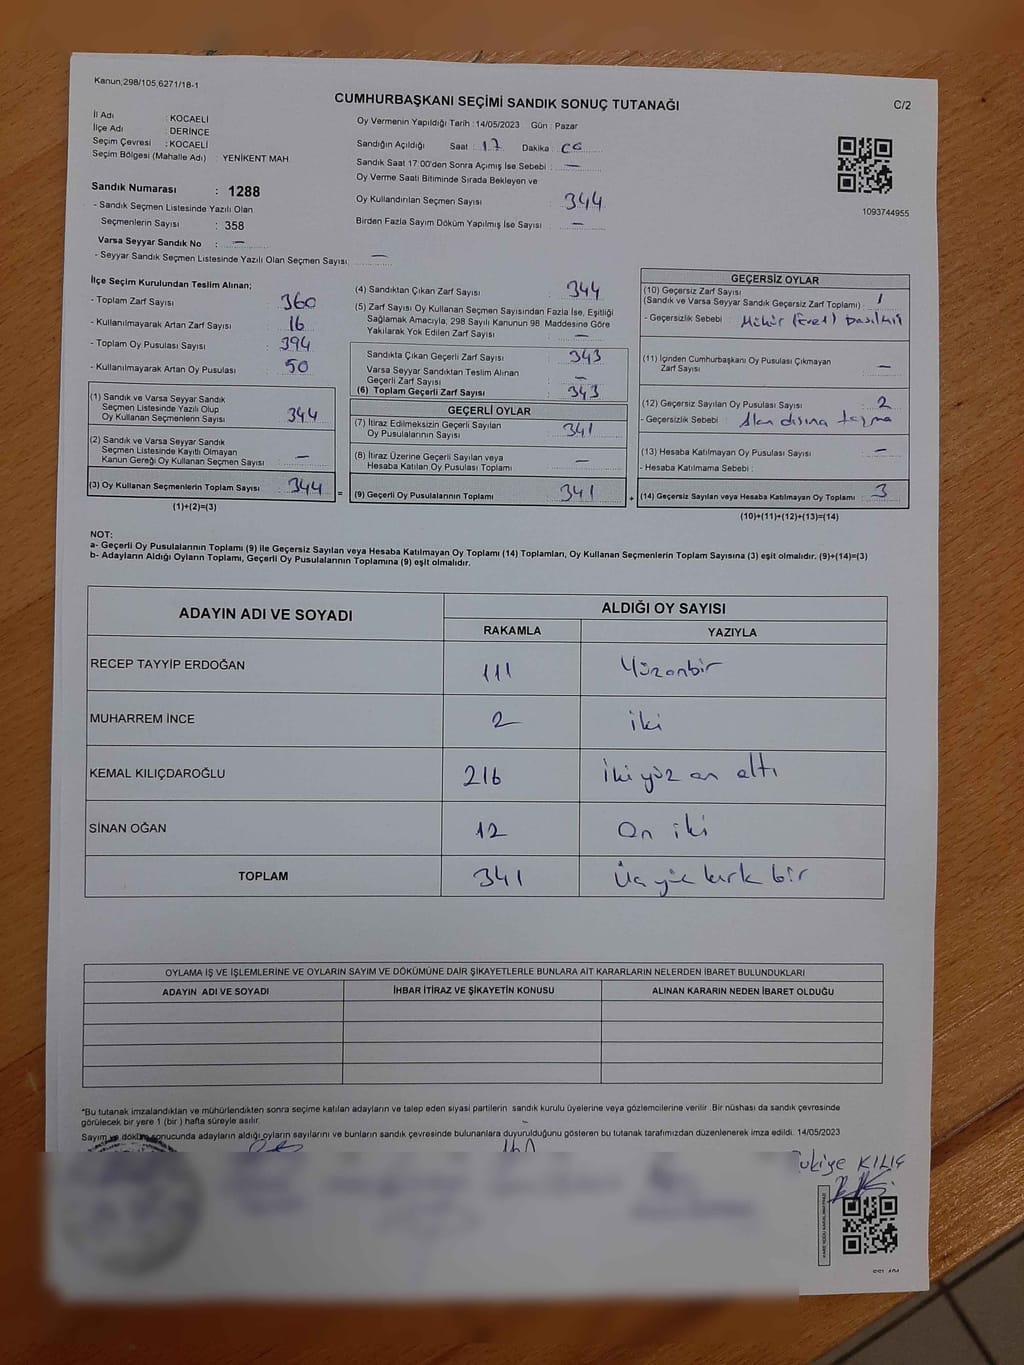 Kanun,298/105,6271/18-1
CUMHURBAŞKANI SEÇİMİ SANDIK SONUÇ TUTANAĞI
C/2
İl Adı : KOCAELİ
İlçe Adı : DERİNCE
Seçim Çevresi : KOCAELİ
Seçim Bölgesi (Mahalle Adı) : YENİKENT MAH.
Sandık Numarası : 1288
- Sandık Seçmen Listesinde Yazılı Olan
Seçmenlerin Sayısı : 358
Varsa Seyyar Sandık No : —
- Seyyar Sandık Seçmen Listesinde Yazılı Olan Seçmen Sayısı: —
Oy Vermenin Yapıldığı Tarih : 14/05/2023 Gün : Pazar
Sandığın Açıldığı Saat : 17 Dakika : 00
Sandık Saat 17:00'den Sonra Açımış İse Sebebi : —
Oy Verme Saati Bitiminde Sırada Bekleyen ve
Oy Kullandırılan Seçmen Sayısı : 344
Birden Fazla Sayım Döküm Yapılmış İse Sayısı : —
1093744955
İlçe Seçim Kurulundan Teslim Alınan;
- Toplam Zarf Sayısı : 360
- Kullanılmayarak Artan Zarf Sayısı : 16
- Toplam Oy Pusulası Sayısı : 394
- Kullanılmayarak Artan Oy Pusulası : 50
(1) Sandık ve Varsa Seyyar Sandık
Seçmen Listesinde Yazılı Olup
Oy Kullanan Seçmenlerin Sayısı : 344
(2) Sandık ve Varsa Seyyar Sandık
Seçmen Listesinde Kayıtlı Olmayan
Kanun Gereği Oy Kullanan Seçmen Sayısı : —
(3) Oy Kullanan Seçmenlerin Toplam Sayısı : 344 =
(1)+(2)=(3)
(4) Sandıktan Çıkan Zarf Sayısı : 344
(5) Zarf Sayısı Oy Kullanan Seçmen Sayısından Fazla İse, Eşitliği
Sağlamak Amacıyla, 298 Sayılı Kanunun 98. Maddesine Göre
Yakılarak Yok Edilen Zarf Sayısı : —
Sandıkta Çıkan Geçerli Zarf Sayısı : 343
Varsa Seyyar Sandıktan Teslim Alınan
Geçerli Zarf Sayısı : —
(6) Toplam Geçerli Zarf Sayısı : 343
GEÇERLİ OYLAR
(7) İtiraz Edilmeksizin Geçerli Sayılan
Oy Pusulalarının Sayısı : 341
(8) İtiraz Üzerine Geçerli Sayılan veya
Hesaba Katılan Oy Pusulası Toplamı : —
(9) Geçerli Oy Pusulalarının Toplamı : 341 +
GEÇERSİZ OYLAR
(10) Geçersiz Zarf Sayısı
(Sandık ve Varsa Seyyar Sandık Geçersiz Zarf Toplamı) : 1
- Geçersizlik Sebebi : Mühür (Evet) basılmış
(11) İçinden Cumhurbaşkanı Oy Pusulası Çıkmayan
Zarf Sayısı : —
(12) Geçersiz Sayılan Oy Pusulası Sayısı : 2
- Geçersizlik Sebebi : Alan dışına taşma
(13) Hesaba Katılmayan Oy Pusulası Sayısı : —
- Hesaba Katılmama Sebebi :
(14) Geçersiz Sayılan veya Hesaba Katılmayan Oy Toplamı : 3
(10)+(11)+(12)+(13)=(14)
NOT:
a- Geçerli Oy Pusulalarının Toplamı (9) ile Geçersiz Sayılan veya Hesaba Katılmayan Oy Toplamı (14) Toplamları, Oy Kullanan Seçmenlerin Toplam Sayısına (3) eşit olmalıdır. (9)+(14)=(3)
b- Adayların Aldığı Oyların Toplamı, Geçerli Oy Pusulalarının Toplamına (9) eşit olmalıdır.
ADAYIN ADI VE SOYADI
ALDIĞI OY SAYISI
RAKAMLA YAZIYLA
RECEP TAYYİP ERDOĞAN 111 Yüzonbir
MUHARREM İNCE 2 iki
KEMAL KILIÇDAROĞLU 216 İki yüz on altı
SİNAN OĞAN 12 On iki
TOPLAM 341 Üç yüz kırk bir
OYLAMA İŞ VE İŞLEMLERİNE VE OYLARIN SAYIM VE DÖKÜMÜNE DAİR ŞİKAYETLERLE BUNLARA AİT KARARLARIN NELERDEN İBARET BULUNDUKLARI
ADAYIN ADI VE SOYADI İHBAR İTİRAZ VE ŞİKAYETİN KONUSU ALINAN KARARIN NEDEN İBARET OLDUĞU
*Bu tutanak imzalandıktan ve mühürlendikten sonra seçime katılan adayların ve talep eden siyasi partilerin sandık kurulu üyelerine veya gözlemcilerine verilir. Bir nüshası da sandık çevresinde
görülecek bir yere 1 (bir) hafta süreyle asılır.
Sayım ve döküm sonucunda adayların aldığı oyların sayılarını ve bunların sandık çevresinde bulunanlara duyurulduğunu gösteren bu tutanak tarafımızdan düzenlenerek imza edildi. 14/05/2023
KILIÇ